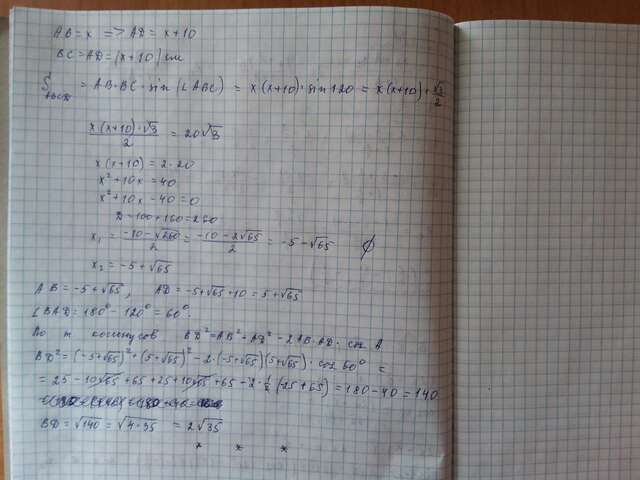 AB = x => AD = x+10
BC = AD = (x+10) см
S ABCD = AB·BC·sin(∠ABC) = x(x+10)·sin120 = x(x+10)·√3/2
x(x+10)·√3/2 = 20√3
x(x+10) = 2·20
x²+10x = 40
x²+10x-40=0
D=100+160=260
x₁ = -10-√260/2 = -10-2√65/2 = -5-√65 ∅
x₂ = -5+√65
AB = -5+√65, AD = -5+√65+10 = 5+√65
∠BAD = 180°-120° = 60°.
По т косинусов BD²=AB²+AD²-2AB·AD·cos A
BD² = (-5+√65)²+(5+√65)²-2·(-5+√65)(5+√65)·cos 60° =
= 25-10√65+65+25+10√65+65-2·1/2(-25+65) = 180-40=140
BD = √140 = √4·35 = 2√35
* * *